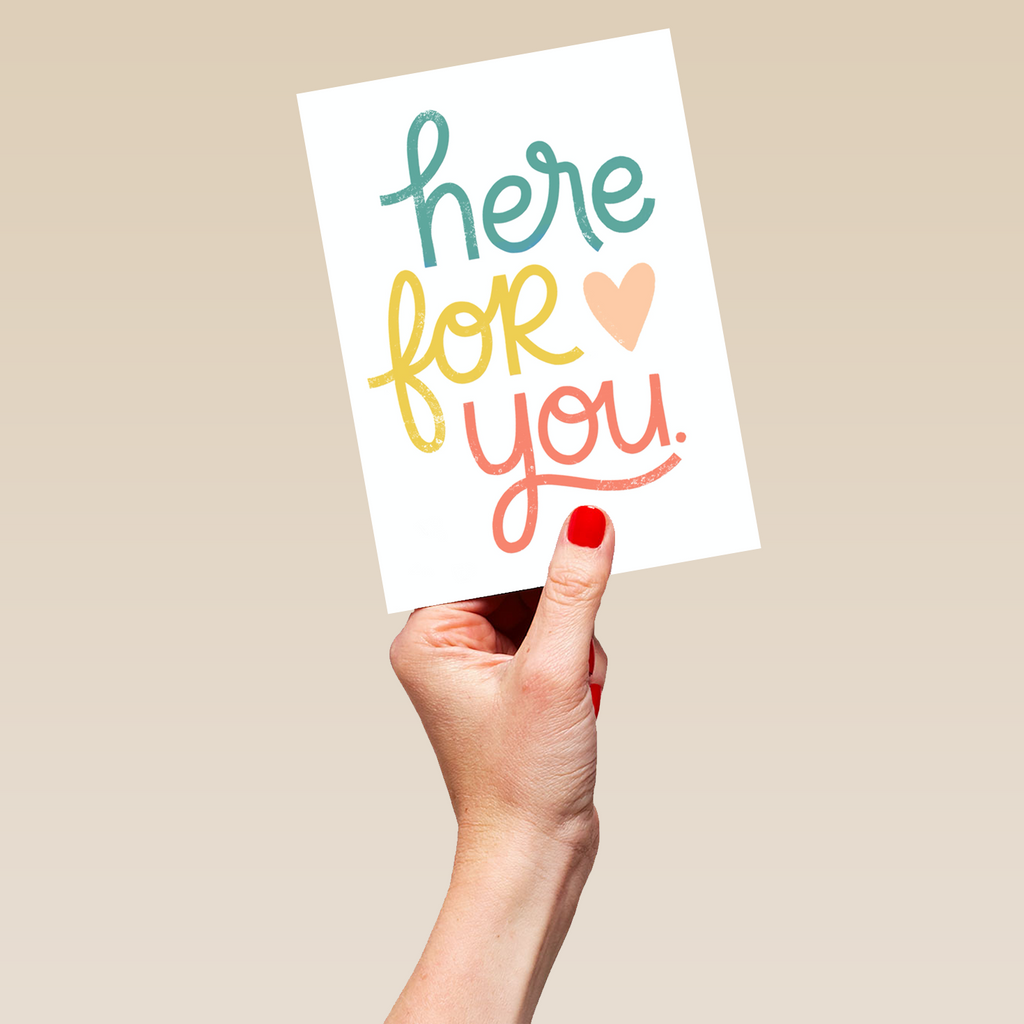 here
for
you.